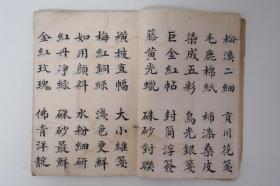 松溪二細 貢川花箋
毛鹿棉紙 柿漆桑皮
染成五彩 烏光銀箋
巨金紅帖 封筒浮簽
籐黄光蠟 硃砂封聯
橫披直幅 大小雄箋
梅紅銅綠 淺色更鮮
如用顔料 水粉細研
紅丹淨綠 硃砂最鮮
金紅玫瑰 佛青洋靛